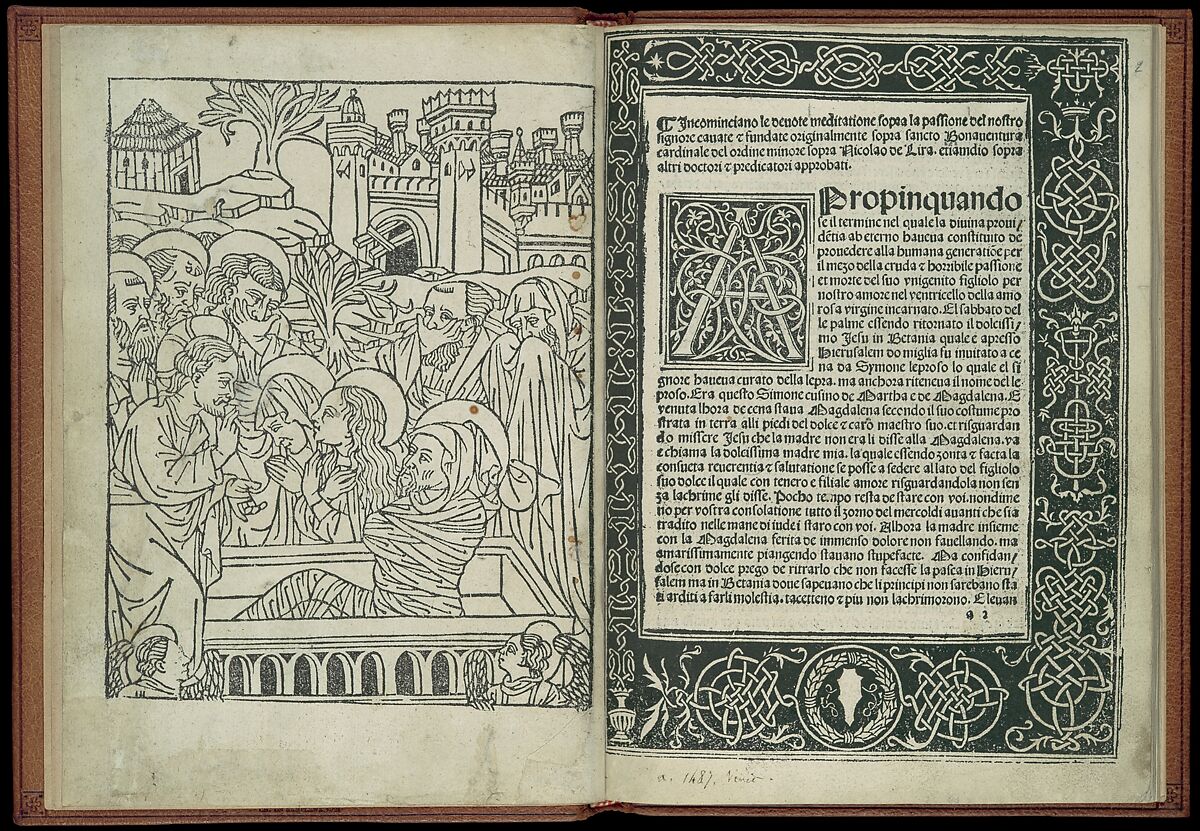 2
¶ Incominciano le deuote meditatione sopra la passione del nostro
signore cauate ⁊ fundate originalmente sopra sancto Bonauentura
cardinale del ordine minore sopra Nicolao de Lira. etiamdio sopra
altri doctori ⁊ predicatori approbati.
APropinquando
se il termine nel quale la diuina proui/
dētia ab eterno haueua constituito de
prouedere alla humana generatiōe per
il mezo della cruda ⁊ horribile passione
et morte del suo vnigenito figliolo per
nostro amore nel ventricello della amo
rosa virgine incarnato. El sabbato del
le palme essendo ritornato il dolcissi/
mo Jesu in Betania quale e apresso
Hierusalem do miglia fu inuitato a ce
na da Symone leproso lo quale el si
gnore haueua curato della lepra. ma anchora riteneua il nome del le
proso. Era questo Simone cusino de Martha e de Magdalena. E
venuta lhora de cena staua Magdalena secondo il suo costume pro
strata in terra alli piedi del dolce ⁊ caro maestro suo. et risguardan
do missere Jesu che la madre non era li disse alla Magdalena. va
e chiama la dolcissima madre mia. la quale essendo zonta ⁊ facta la
consueta reuerentia ⁊ salutatione se posse a sedere al lato del figliolo
suo dolce il quale con tenero e filiale amore risguardandola non sen
za lachrime gli disse. Pocho tempo resta de stare con voi. nondime
no per vostra consolatione tutto il zorno del mercoldi auanti che sia
tradito nelle mane di iudei staro con voi. Alhora la madre insieme
con la Magdalena ferita de immenso dolore non fauellando. ma
amarissimamente piangendo stauano stupefacte. Ma confidan/
dose con dolce prego de ritrarlo che non facesse la pasca in Hieru/
salem ma in Betania doue sapeuano che li principi non sarebano sta
ti arditi a farli molestia. tacetteno ⁊ piu non lachrimorono. E leuan
a 2
a. 1487. Venet.